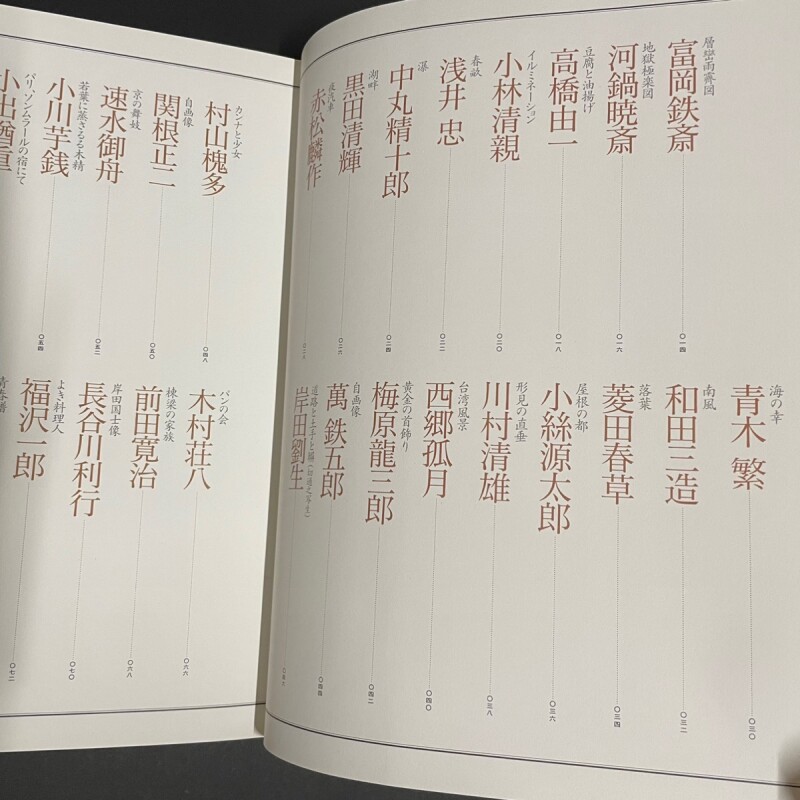 層巒雨霽図
富岡鉄斎
〇一四
地獄極楽図
河鍋暁斎
〇一六
豆腐と油揚げ
高橋由一
〇一八
イルミネーション
小林清親
〇二〇
春畝
浅井 忠
〇二二
瀑
中丸精十郎
〇二四
湖畔
黒田清輝
〇二六
夜汽車
赤松麟作
海の幸
青木 繁
〇三〇
南風
和田三造
〇三二
落葉
菱田春草
〇三四
屋根の都
小絲源太郎
〇三六
形見の直垂
川村清雄
〇三八
台湾風景
西郷孤月
〇四〇
黄金の首飾り
梅原龍三郎
〇四二
自画像
萬 鉄五郎
〇四四
道路と土手と塀(切通之写生)
岸田劉生
カンナと少女
村山槐多
〇四八
自画像
関根正二
〇五〇
京の舞妓
速水御舟
〇五二
若葉に蒸さるる木精
小川芋銭
〇五四
パリ、ソンムラールの宿にて
小出楢重
パンの会
木村荘八
〇六六
棟梁の家族
前田寛治
〇六八
岸田国士像
長谷川利行
〇七〇
よき料理人
福沢一郎
〇七二
青春譜